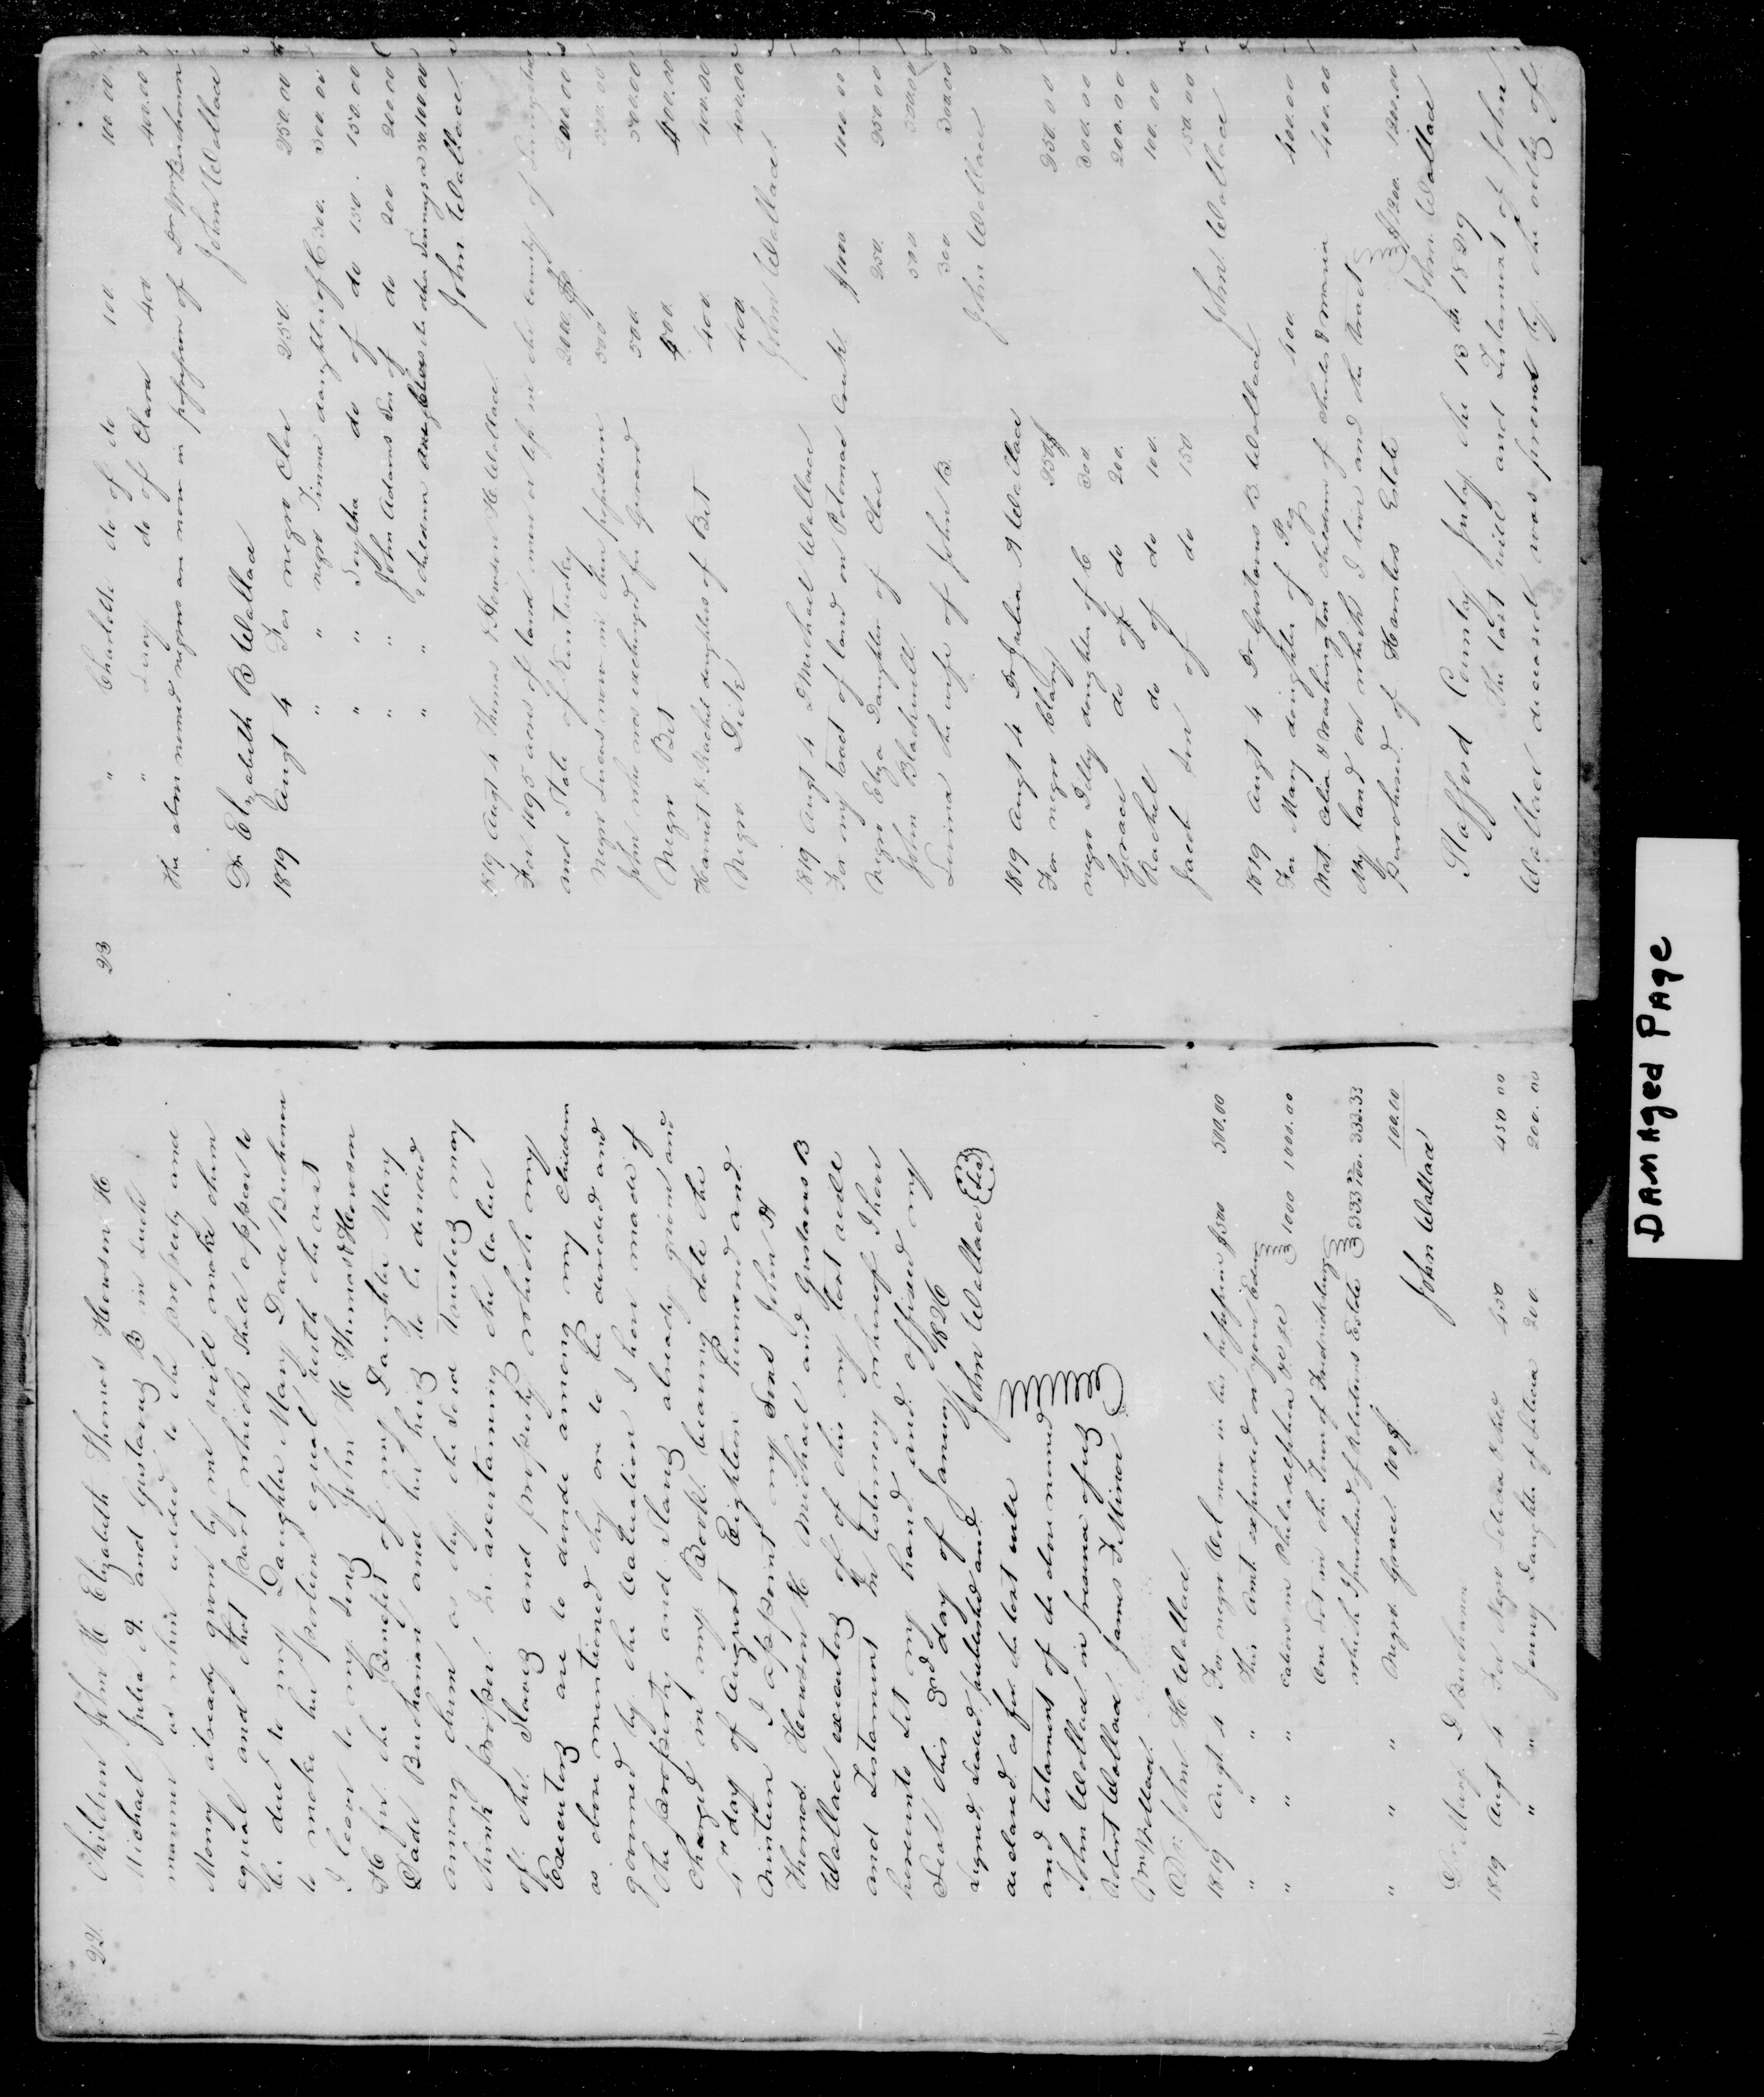 22.
Children John H Elizabeth Thomas Howson H
Michael Julia A. and Gustavus B in such
manner as when added to the property and
Money already given by me will make them
equal and that part which shall appear to
be due to my Daughter Mary Dade Buchanan
to make her portion equal with the rest
I leave to my Sons John H Thomas & Howson
H for the Benefit of my Daughter Mary
Dade Buchanan and her heirs to be divided
among them as they the said Trustees may
think proper. In ascertaining the Value
of the Slaves and property which my
Executors are to divide among my Children
as above mentioned they are to be directed and
governed by the Valuation I have made of
the property and Slaves already given and
charged in my Book bearing date the
day of August Eighteen hundred and
Ninteen I appoint my Sons John H
Thomas Howson H Michael and Gustavus B
Wallace executors of this my last will
and Testament In testimony whereof I have
hereunto set my hand and affixed my
Seal this 3rd day of January 1826
Signed, sealed, published and John Wallace Seal
declared as for the last will
and testament of the above named
John Wallace in presence of us
Robert Wallace James F Minor
Wm Wallace
Dr. John H Wallace
1819 Augt 4 For negro Wel now in his possession $500 500.00
" " This amt expended on your Edu
" " cation in Philadelphia 1000 1000.00
One Lot in the Town of Fredricksburg
which I purchased of Estate 333 33/100. 333.33
" " Negro Grace 100$ 100.00
John Wallace
Dr Mary D Buchanan
1819 Augt 4 For Negro Leticia & child 450 450 00
" " Jenny Daughter of Leticia 200 200.00
23
" Charlotte do of do 100 100.00
" Lucy do of Clara 400 400.00
The above named negroes are now in possession of Buchanan
John Wallace
Dr Elizabeth B Wallace
1819 Augt 4 For negro Cloe 250. 250.00
" " negro Tinna daughter of C 300. 300.00
" " do of do 150. 150.00
" " John Adams son of do 200 200.00
" " 2 children 100.00
John Wallace
1819 Augt 4 Thomas & Howson H Wallace
For 1195 acres of land more or less in the County of Livingston
and State of Kentucky 2000.$ 2000.00
Negro Lucas now in their possession 500 500.00
John who was exchanged for Gerard 500. 500.00
Negro Bet 400.00
Harriet & Rachel daughters of Bet 400. 400.00
Negro Dick 400 400.00
John Wallace
1819 Augt 4 Dr Michael Wallace
For my tract of land on Potomac Creek $1000 1000.00
Negro Eliza Daughter of Cloe 250. 250.00
John Blackwell 500 500.00
the wife of John B. 300 300.00
John Wallace
1819 Augt 4 Dr Julia A Wallace
For negro Clary 250$ 250.00
negro Tilly daughter of C 300 300.00
Grace do of do 200. 200.00
Rachel do of do 100 100.00
Jacob son of do 150 150.00
John Wallace
1819 Augt 4 Dr Gustavus B Wallace
For Mary daughter of Peg 400 400.00
Nat. Celia & Washington children of Charles & Maria 400.00
My land on which I live and the tract
purchased of Hunters Estate $1200. 1200.00
John Wallace
Stafford County July the 13th 1829
The last will and Testament of John
Wallace deceased was proved by the oaths of
DAMAged PAge